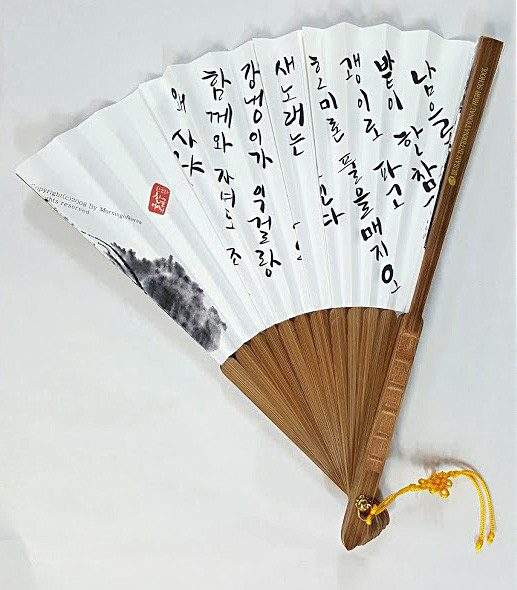 남으로
밭이 한참
괭이로 파고
호미론 풀을 매지오
새 노래는
강냉이가 익걸랑
함께 와 자셔도 조
왜 사냐
Copyright(c)2008 By MorningKorea
rights reserved
BUSAN INTERNATIONAL HIGH SCHOOL